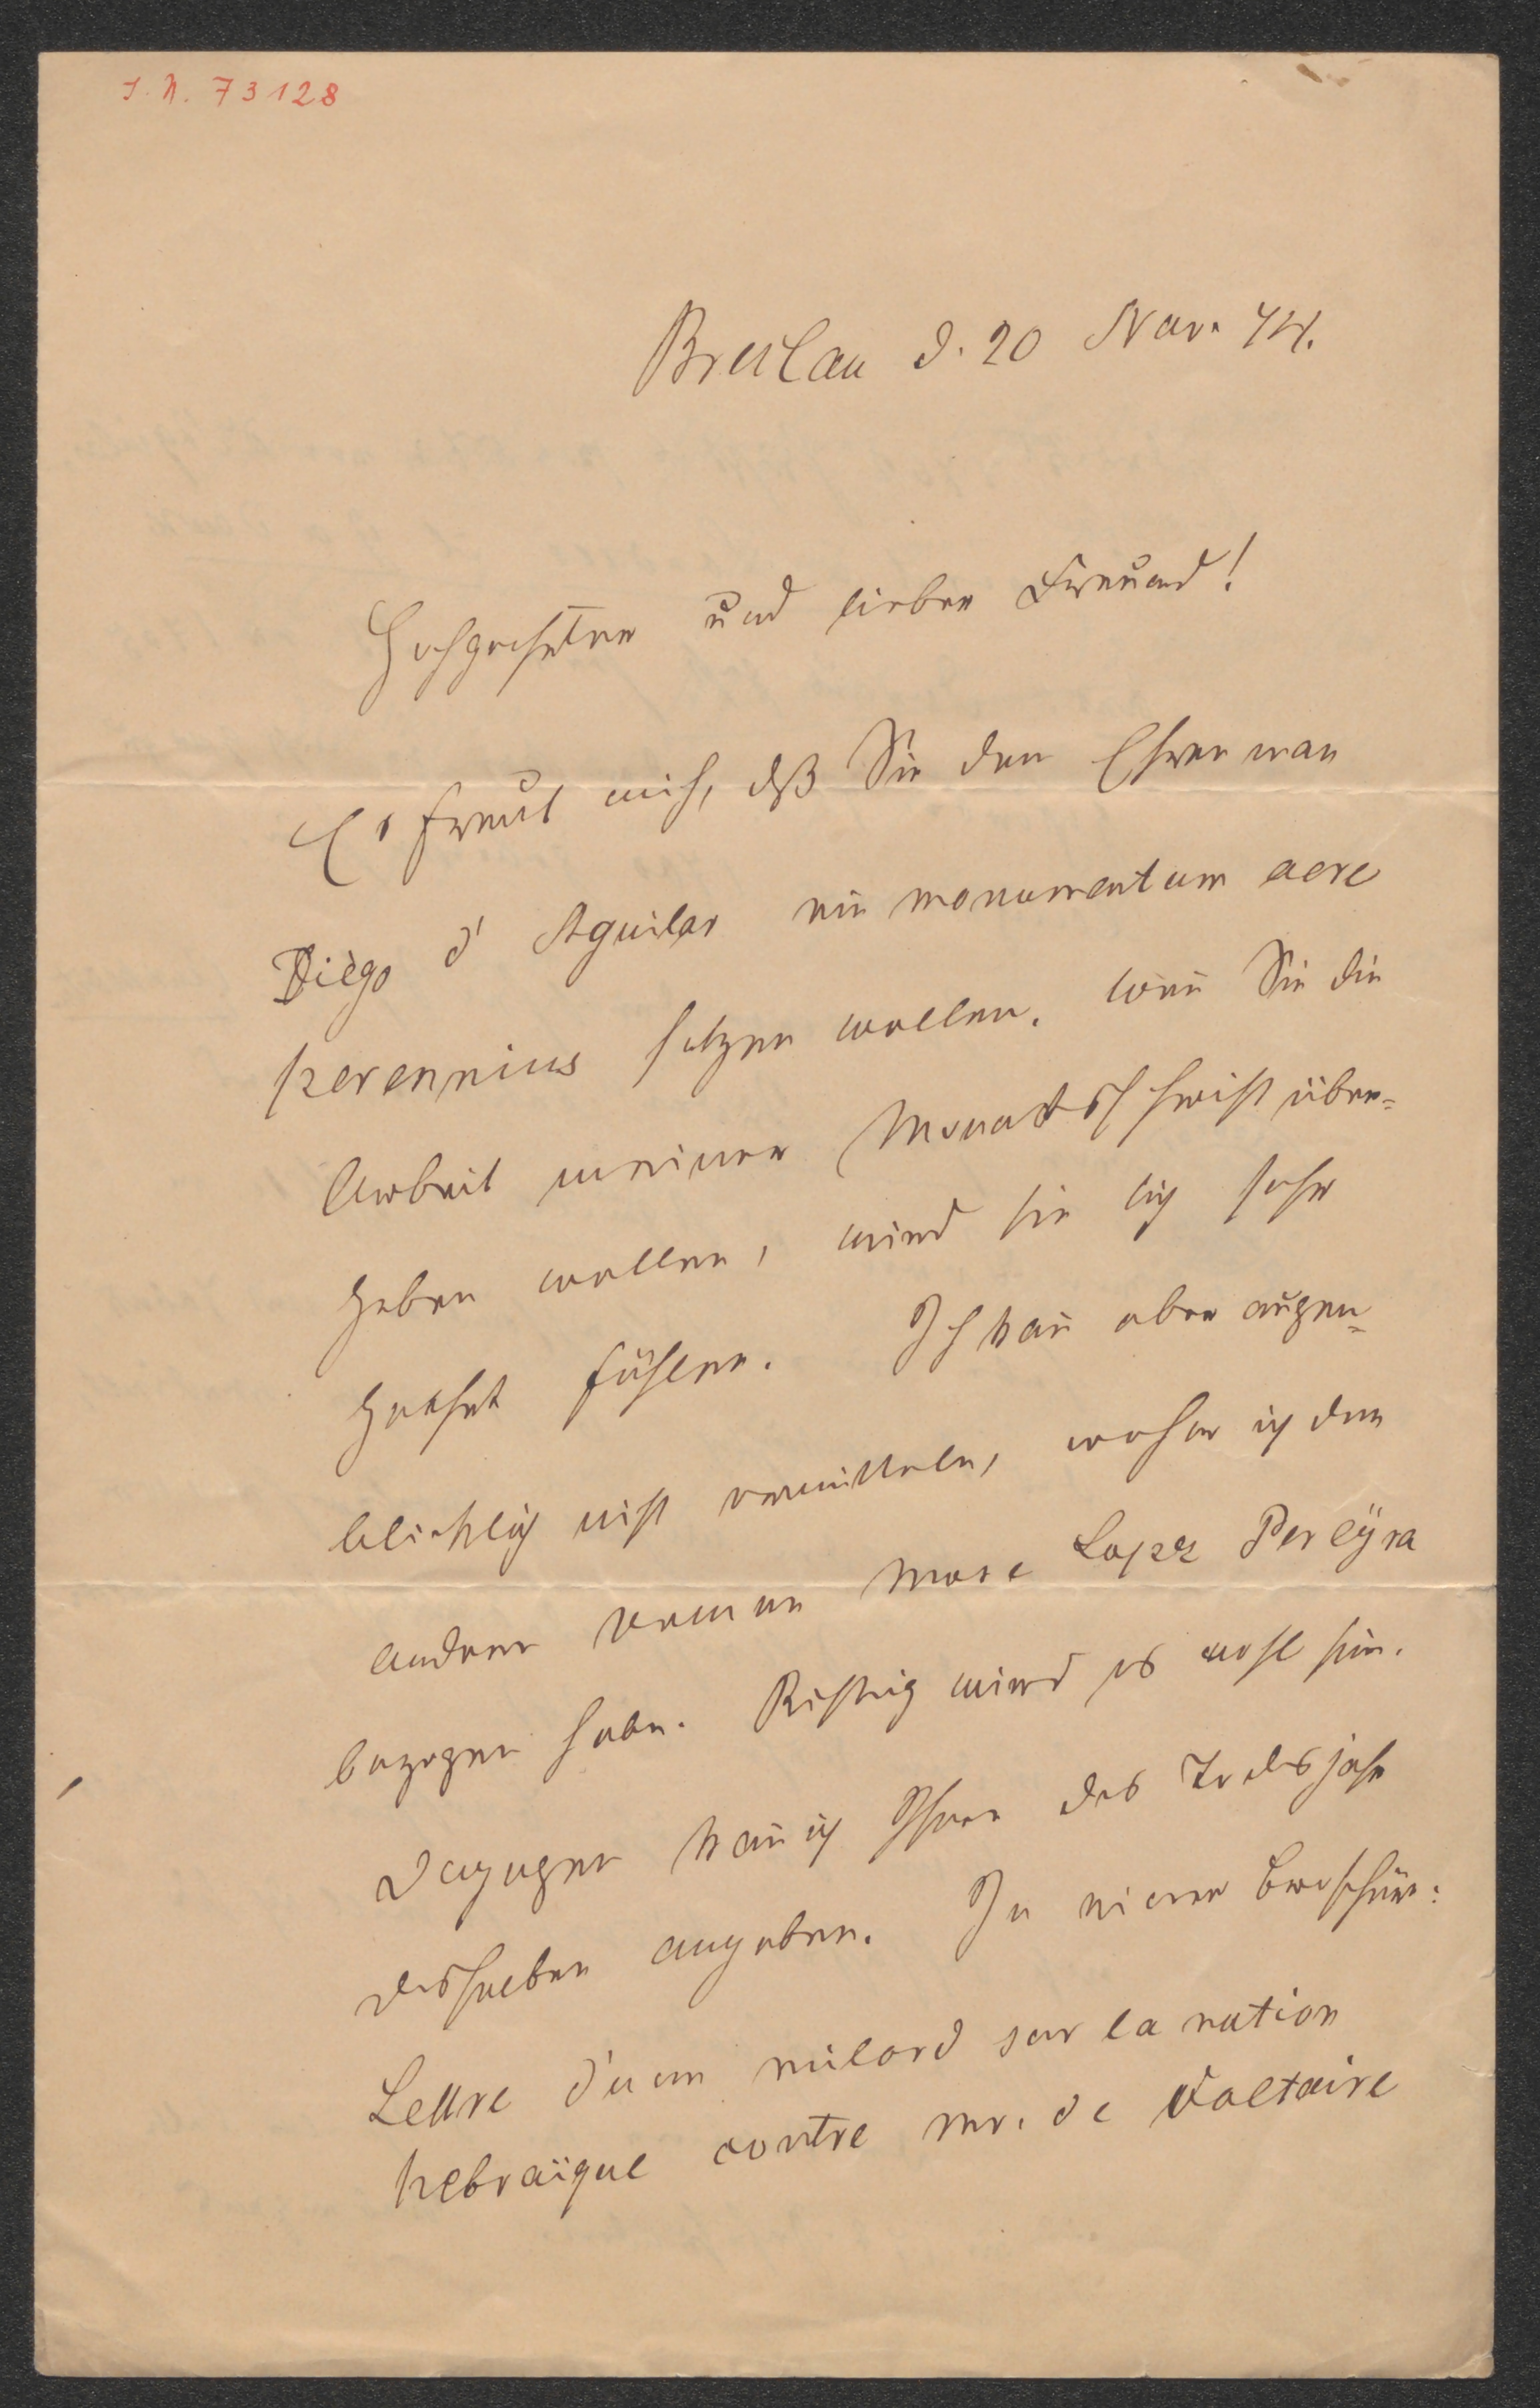 I. N. 73128
Breslau d. 20 Nov. 74.
Hochgeehrter und lieber Freund!
Es freut mich, dß Sie dem Ehrenman
Diègo d' Aguilar ein monumentum aere
perennius setzen wollen. Wen̄ Sie die
Arbeit meiner Monatsschrift über-
geben wollen, wird sie sich sehr
geehrt fühlen. Ich kan̄ aber augen-
blicklich nicht ermitteln, woher ich den
andern Namen Mose Lopez Pereÿra
bezogen habe. Richtig wird es wohl sein.
Dagegen kan̄ ich Ihnen das Todesjahr
desselben angeben. In einer Broschüre:
Lettre d'un milord sur la nation
hebraïque contre mr. de Voltaire